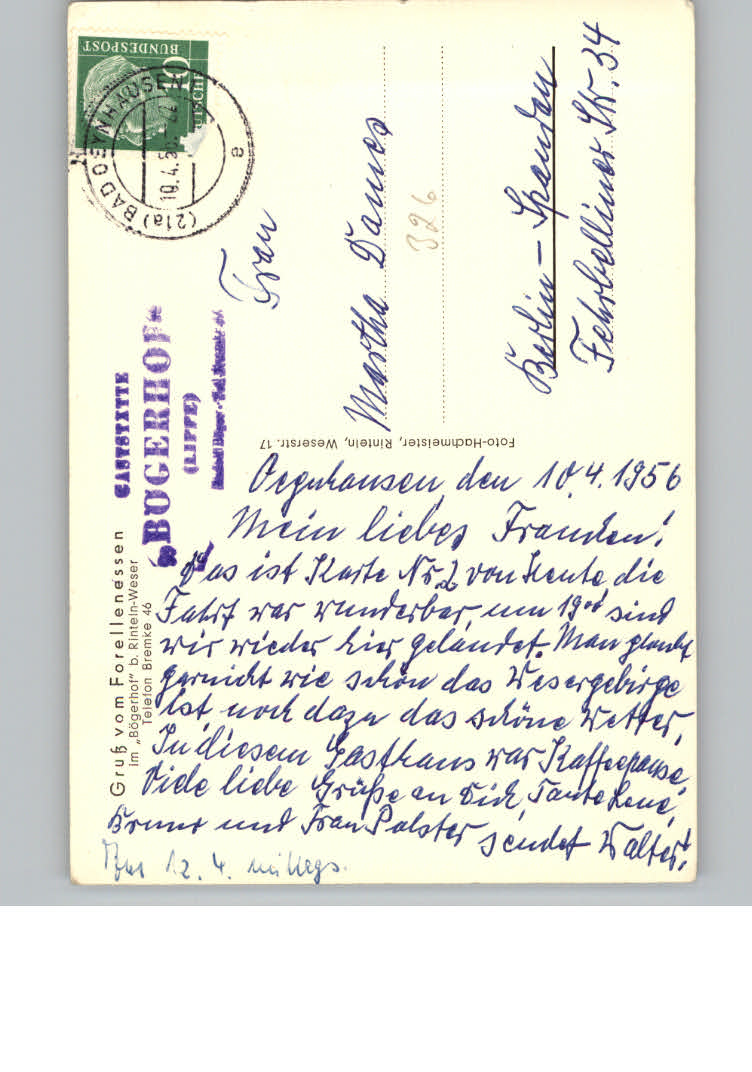 Gruß vom Forellenessen
im „Bögerhof" b. Rinteln-Weser
Telefon Bremke 46
GASTSTÄTTE
"BÖGERHOF"
(LIPPE)
Foto-Hachmeister, Rinteln, Weserstr. 17
BUNDESPOST
(21a) BAD OEYNHAUSEN 1
10.4.56
e
Frau
Martha Dames
326
Berlin – Spandau
Fehrbelliner Str. 34
Oeynhausen, den 10.4.1956
Mein liebes Frauchen!
Das ist Karte Nr. 2 von Heute die
Fahrt war wunderbar, um 19 sind
wir wieder hier gelandet. Man glaubt
garnicht wie schön das Wesergebirge
ist, noch dazu das schöne Wetter,
In diesem Gasthaus war Kaffeepause,
Viele liebe Grüße an Dich, Tante Lene,
Bruno und Frau Polster sendet Walter!
12. 4. mittags.